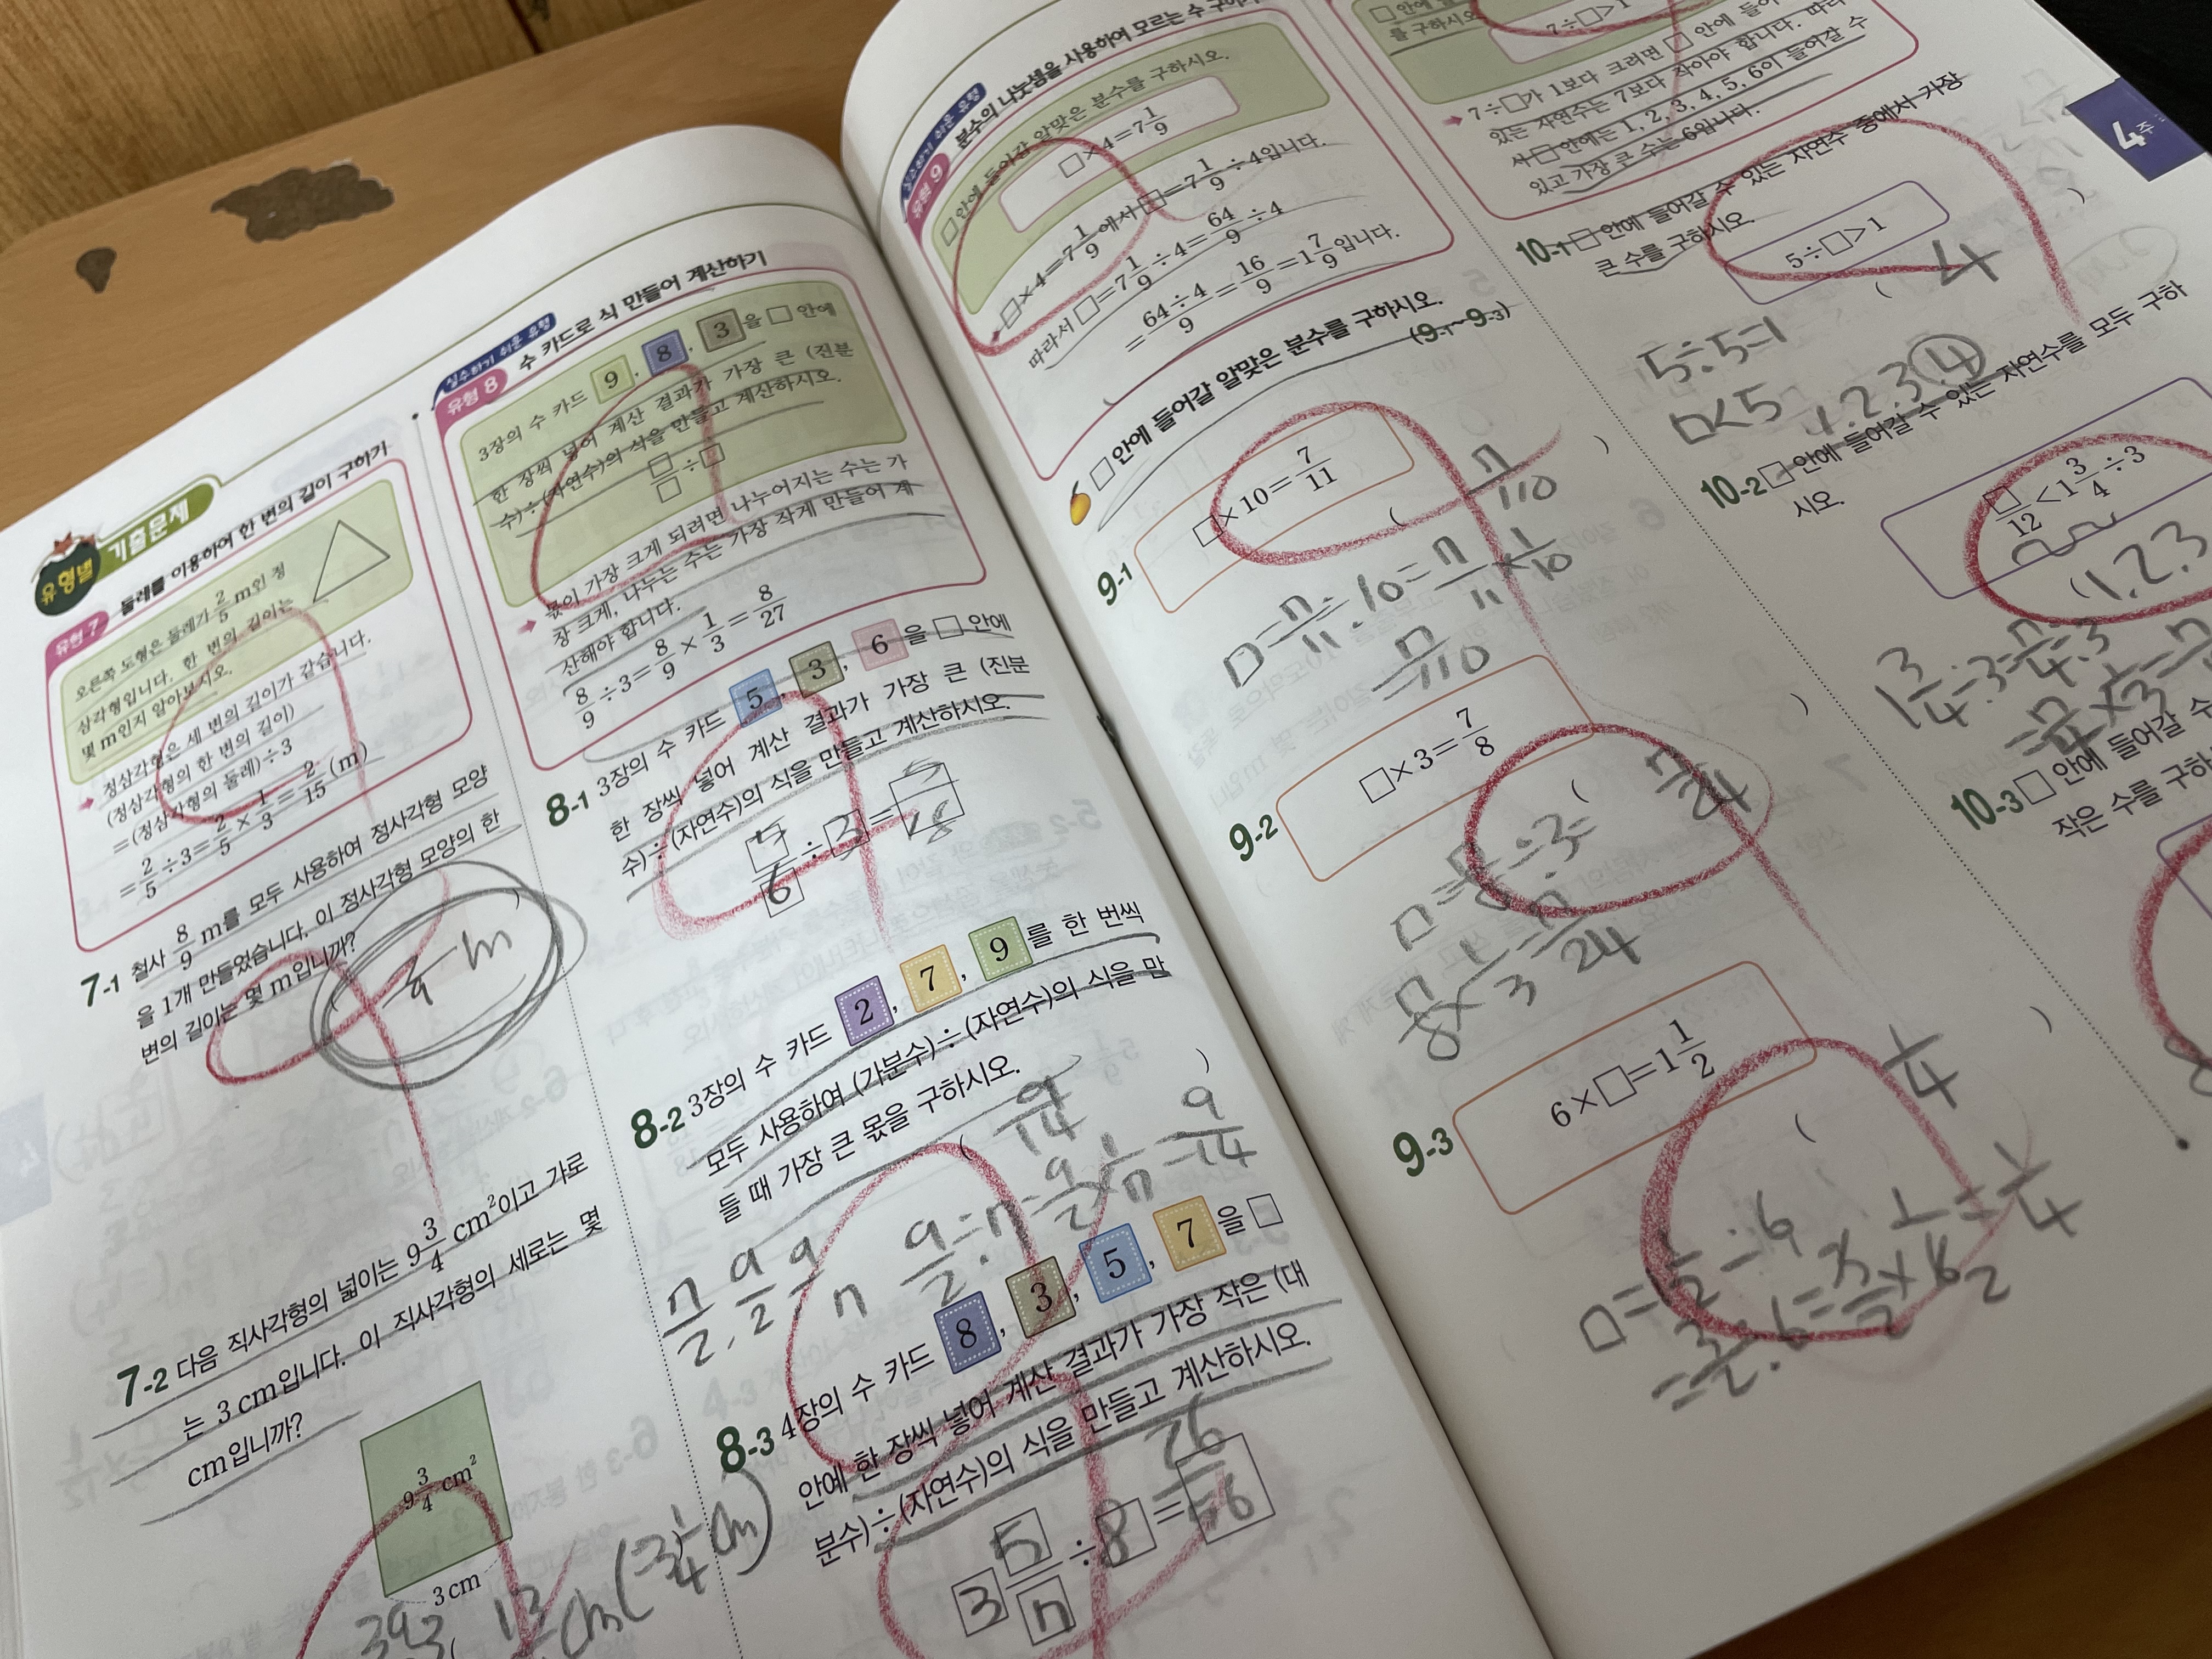 유형별 기출문제
유형 7 둘레를 이용하여 한 변의 길이 구하기
오른쪽 도형은 둘레가 2/5 m인 정
삼각형입니다. 한 변의 길이는
몇 m인지 알아보시오.
정삼각형은 세 변의 길이가 같습니다.
(정삼각형의 한 변의 길이)
=(정삼각형의 둘레)÷3
=2/5÷3=2/5×1/3=2/15(m)
7-1 철사 8/9 m를 모두 사용하여 정사각형 모양
을 1개 만들었습니다. 이 정사각형 모양의 한
변의 길이는 몇 m입니까?
m
7-2 다음 직사각형의 넓이는 9 3/4 cm²이고 가로
는 3 cm입니다. 이 직사각형의 세로는 몇
cm입니까?
9 3/4 cm²
3 cm
13/4 cm (=3 1/4 cm)
실수하기 쉬운 유형
유형 8 수 카드로 식 만들어 계산하기
3장의 수 카드 9, 8, 3을 □ 안에
한 장씩 넣어 계산 결과가 가장 큰 (진분
수)÷(자연수)의 식을 만들고 계산하시오.
□/□÷□
몫이 가장 크게 되려면 나누어지는 수는 가
장 크게, 나누는 수는 가장 작게 만들어 계
산해야 합니다.
8/9÷3=8/9×1/3=8/27
8-1 3장의 수 카드 5, 3, 6을 □ 안에
한 장씩 넣어 계산 결과가 가장 큰 (진분
수)÷(자연수)의 식을 만들고 계산하시오.
5/6÷3=5/18
8-2 3장의 수 카드 2, 7, 9를 한 번씩
모두 사용하여 (가분수)÷(자연수)의 식을 만
들 때 가장 큰 몫을 구하시오.
( 9/14 )
7/2, 9/2, 9/7 9/2÷7=9/2×1/7=9/14
8-3 4장의 수 카드 8, 3, 5, 7을 □
안에 한 장씩 넣어 계산 결과가 가장 작은 (대
분수)÷(자연수)의 식을 만들고 계산하시오.
3 5/7÷8=26/56
실수하기 쉬운 유형
유형 9 분수의 나눗셈을 사용하여 모르는 수 구하기
□ 안에 들어갈 알맞은 분수를 구하시오.
□×4=7 1/9
□×4=7 1/9에서 □=7 1/9÷4입니다.
따라서 □=7 1/9÷4=64/9÷4
=64÷4/9=16/9=1 7/9입니다.
□ 안에 들어갈 알맞은 분수를 구하시오.
(9-1~9-3)
9-1 □×10=7/11
( 7/110 )
□=7/11÷10=7/11×1/10
=7/110
9-2 □×3=7/8
( 7/24 )
□=7/8÷3=
7/8×1/3=7/24
9-3 6×□=1 1/2
( 1/4 )
4주
□ 안에
를 구하시오
7÷□>1
7÷□가 1보다 크려면 □ 안에 들어
있는 자연수는 7보다 작아야 합니다. 따라
서 □ 안에는 1, 2, 3, 4, 5, 6이 들어갈 수
있고 가장 큰 수는 6입니다.
10-1 □ 안에 들어갈 수 있는 자연수 중에서 가장
큰 수를 구하시오.
5÷□>1
( 4 )
5÷5=1
□<5 1.2.3.4
10-2 □ 안에 들어갈 수 있는 자연수를 모두 구하
시오.
□/12<1 3/4÷3
(1, 2, 3
1 3/4÷3=7/4÷3
=7/4×1/3=7
10-3 □ 안에 들어갈 수
작은 수를 구하